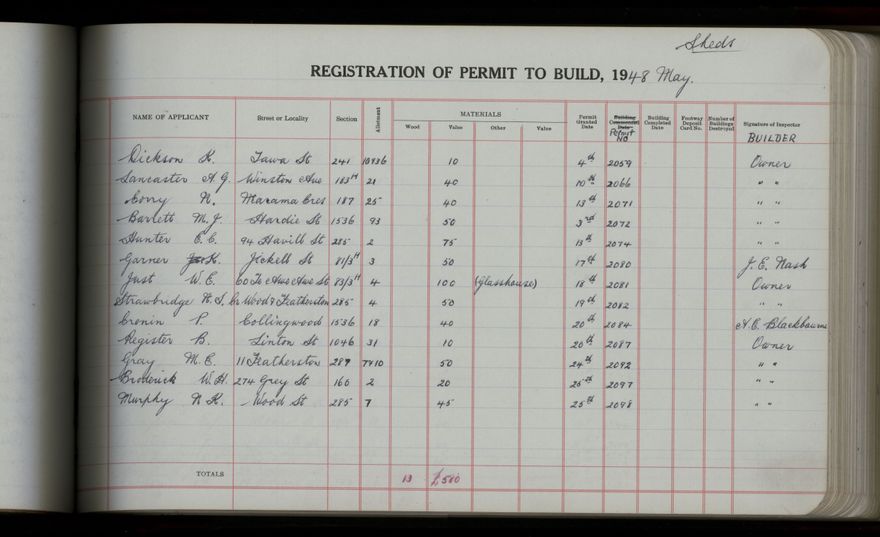 Sheds
REGISTRATION OF PERMIT TO BUILD, 1948 May.
NAME OF APPLICANT Street or Locality Section Allotment MATERIALS Wood Value Other Value Permit Granted Date Building Commenced Date Permit No Building Completed Date Footway Deposit Card No. Number of Buildings Destroyed Signature of Inspector BUILDER
Dickson K. Tawa St 241 10 10 4th 2059 Owner
Lancaster A. G. Winston Ave 183H 21 40 10th 2066 " "
Corry N. Marama Cres 187 25 40 13th 2071 " "
Barrett M. J. Hardie St 1536 93 50 3rd 2072 " "
Hunter C. C. 94 Havill St 285 2 75 13th 2074 " "
Garner K. Jickell St 81/3H 3 50 17th 2080 J. E. Nash
Just W. E. 60 Te Awe Awe St 83/3H 4 100 (Glasshouse) 18th 2081 Owner
Strawbridge N. S. Cr Wood & Featherston 285 4 50 19th 2082 " "
Cronin P. Collingwood 1536 18 40 20th 2084 A. E. Blackbourne
Register B. Linton St 1046 31 10 20th 2087 Owner
Gray M. E. 11 Featherston 289 7Y10 50 24th 2092 " "
Broderick W. H. 274 Grey St 160 2 20 25th 2097 " "
Murphy N K. Wood St 285 7 45 25th 2098 " "
TOTALS 13 £580